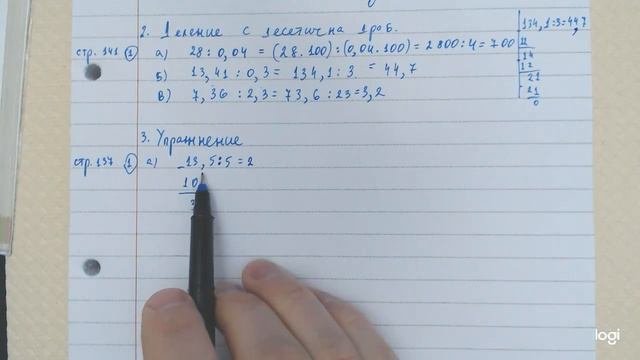 2. Деление с десетична дроб.
стр. 141 1 а) 28 : 0,04 = (28.100) : (0,04.100) = 2800:4 = 700
Б) 13,41 : 0,3 = 134,1 : 3 = 44,7
В) 7,36 : 2,3 = 73,6 : 23 = 3,2
134,1:3=44,7
12
14
12
21
21
0
3. Упражнение
стр. 137 1 а) 13,5:5=2
10
3
logi